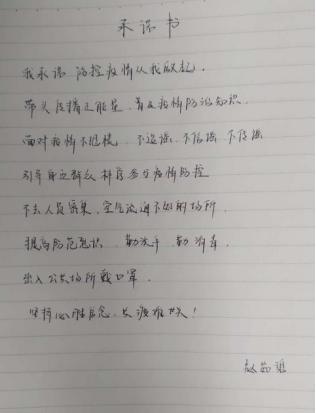 承诺书
我承诺 防控疫情从我做起.
带头传播正能量, 普及疫情防治知识.
面对疫情不恐慌, 不造谣、不信谣、不传谣
引导身边群众科学参与疫情防控
不去人员密集, 空气流通不好的场所.
提高防范意识, 勤洗手, 勤消毒.
出入公共场所戴口罩.
坚持必胜信念, 共渡难关!
赵